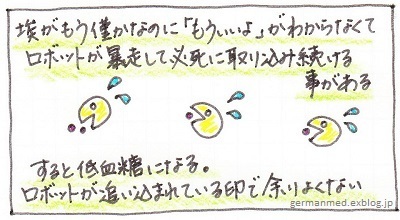 埃がもう僅かなのに「もういいよ」がわからなくて
ロボットが暴走して必死に取り込み続ける
事がある
すると低血糖になる。
ロボットが追い込まれている印で余りよくない
germanmed.exblog.jp